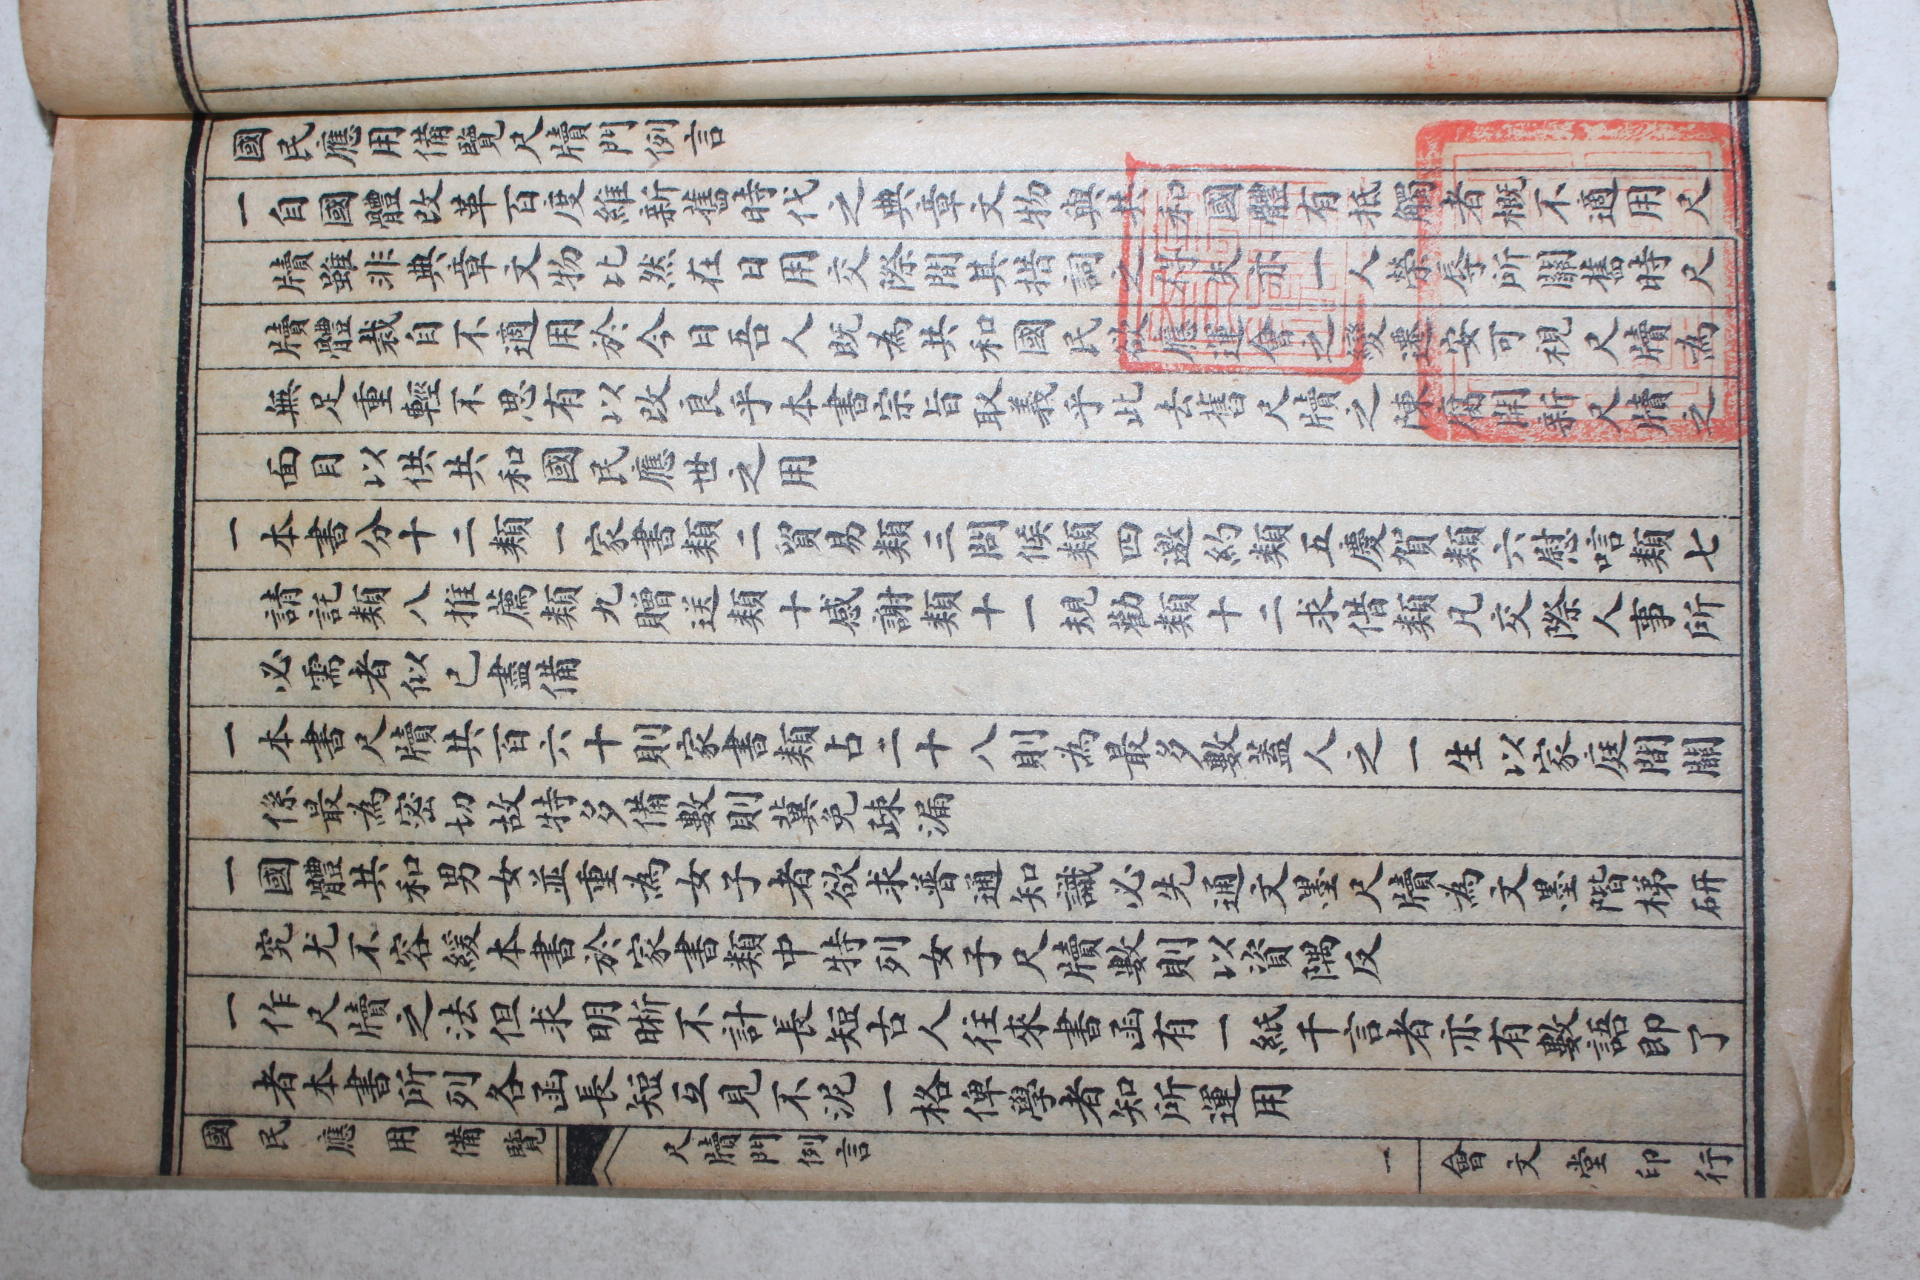 國民應用備覽尺牘門例言
一自國體改革百度維新舊時代之典章文物與共和國體有抵觸者概不適用尺
牘雖非典章文物比然在日用交際間其措詞之得失亦一人榮辱所關舊時尺
牘體裁自不適用於今日吾人既為共和國民欲應運會之變遷安可視尺牘為
無足重輕不思有以改良乎本書宗旨取義乎此去舊尺牘之陳腐開新尺牘之
面目以供共和國民應世之用
一本書分十二類一家書類二貿易類三問候類四邀約類五慶賀類六慰唁類七
請託類八推薦類九贈送類十感謝類十一規勸類十二求借類凡交際人事所
必需者似已盡備
一本書尺牘共百六十則家書類占二十八則為最多數蓋人之一生以家庭間關
係最為密切故特多備數則冀免疎漏
一國體共和男女並重為女子者欲求普通知識必先通文墨尺牘為文墨階梯研
究尤不容緩本書於家書類中特列女子尺牘數則以資隅反
一作尺牘之法但求明晰不計長短古人往來書函有一紙千言者亦有數語即了
者本書所列各函長短互見不泥一格俾學者知所運用
國民應用備覽 尺牘門例言 一 會文堂印行